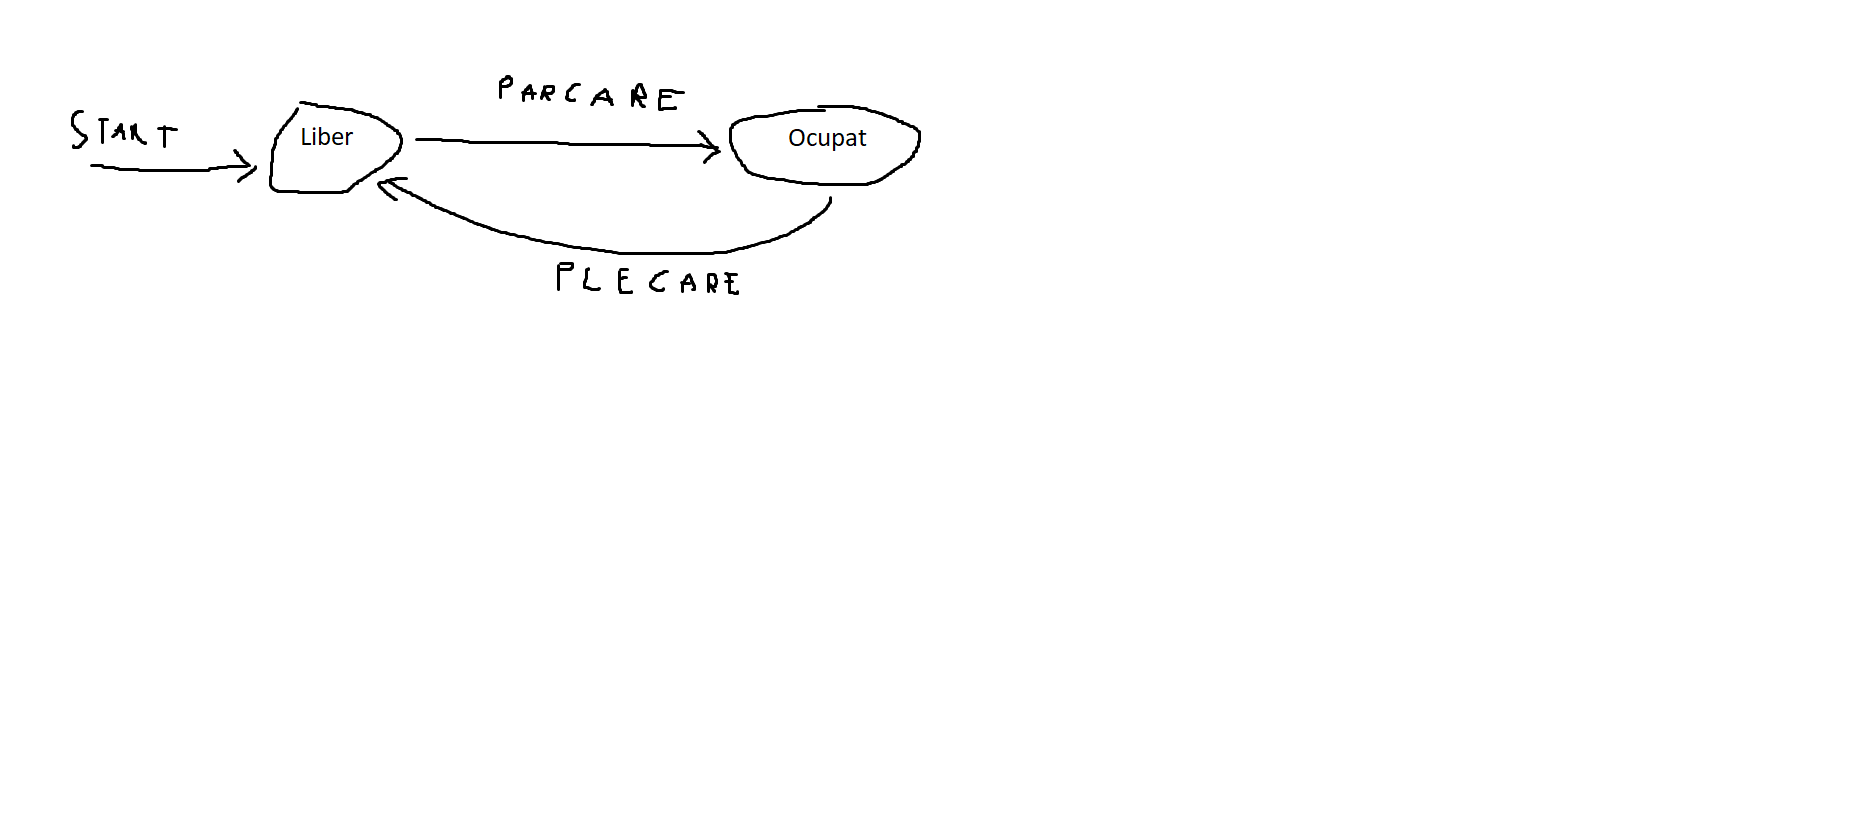 START
Liber
PARCARE
Ocupat
PLECARE